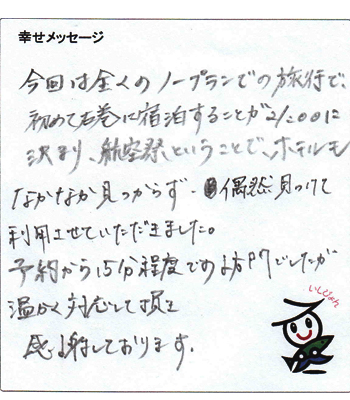 幸せメッセージ
今回は全くのノープランでの旅行で、
初めて石巻に宿泊することが21:00に
決まり、航空祭ということで、ホテルも
なかなか見つからず、偶然見つけて
利用させていただきました。
予約から15分程度での訪問でしたが
温かく対応して頂き
感謝しております。
いしぴょん